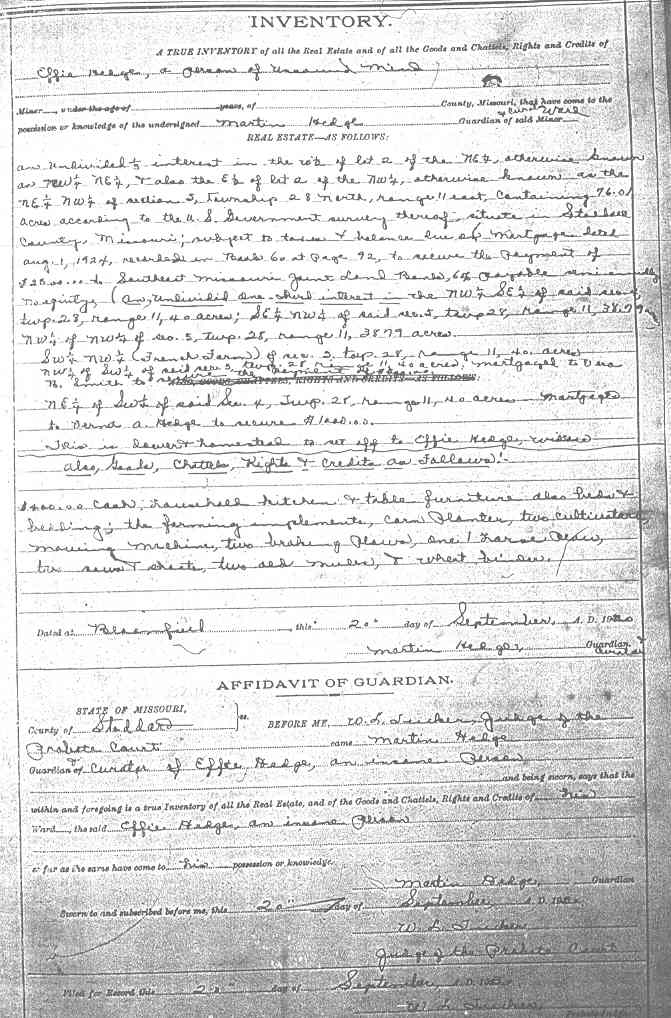 INVENTORY.
A TRUE INVENTORY of all the Real Estate and of all the Goods and Chattels, Rights and Credits of
Effie Hedge, a Person of Unsound Mind
Minor, under the age of years, of County, Missouri, that have come to the
possession or knowledge of the undersigned Martin Hedge Guardian of said Minor Ward
REAL ESTATE—AS FOLLOWS:
an undivided 1/3 interest in the W½ of lot 2 of the NE¼, otherwise known
as NW¼ NE¼, & also the E½ of lot 2 of the NW¼, otherwise known as the
NE¼ NW¼ of section 5, Township 28 North, range 11 east, containing 76.01
acres according to the U.S. Government survey thereof, situate in Stoddard
County, Missouri; subject to taxes & balance due on Mortgage dated
Aug. 1, 1924, recorded in Book 60 at Page 92, to secure the Payment of
$2500.00 to Southeast Missouri Joint Land Bank, 6% payable semi annually
(An undivided one-third interest in the NW¼ SE¼ of said sec 5,
twp. 28, range 11, 40 acres; SE¼ NW¼ of said sec. 5, twp 28, range 11, 38.79
NW¼ of NW¼ of sec. 5, twp. 28, range 11, 38.79 acres.
SW¼ NW¼ (French Farm) of sec. 3, twp. 28, range 11, 40. acres
NW¼ of SW¼ of said sec. 3, twp. 28, range 11, 40 acres, mortgaged to Vera
B. Smith to secure the payment of
ALSO, GOODS, CHATTELS, RIGHTS AND CREDITS—AS FOLLOWS:
NE¼ of SW¼ of said Sec. 4, Twp. 28, range 11, 40 acres Mortgaged
to Verna A. Hedge to secure $1000.00.
This is dower & homestead to set off to Effie Hedge, widow
Also, Goods, Chattels, Rights & Credits as Follows:-
$400.00 Cash; household kitchen & table furniture also beds &
bedding; the farming implements, corn Planter, two cultivators,
mowing machine, two braking Plows, one 1 horse Plow,
two sows & shoats, two old mules, & wheat binder.
Dated at Bloomfield, this 20" day of September, A. D. 19
Martin Hedge, Guardian. Curator
AFFIDAVIT OF GUARDIAN.
STATE OF MISSOURI,
County of Stoddard ss. BEFORE ME, W. L. Tucker, Judge of the
Probate Court came Martin Hedge
Guardian & Curator of Effie Hedge, an insane Person
and being sworn, says that the
within and foregoing is a true Inventory of all the Real Estate, and of the Goods and Chattels, Rights and Credits of his
Ward, the said Effie Hedge, an insane Person
so far as the same have come to his possession or knowledge.
Martin Hedge, Guardian
Sworn to and subscribed before me, this 20" day of September, A. D. 19
W. L. Tucker
Judge of the Probate Court
Filed for Record this 20" day of September, A. D. 19
W. L. Tucker
Probate Judge